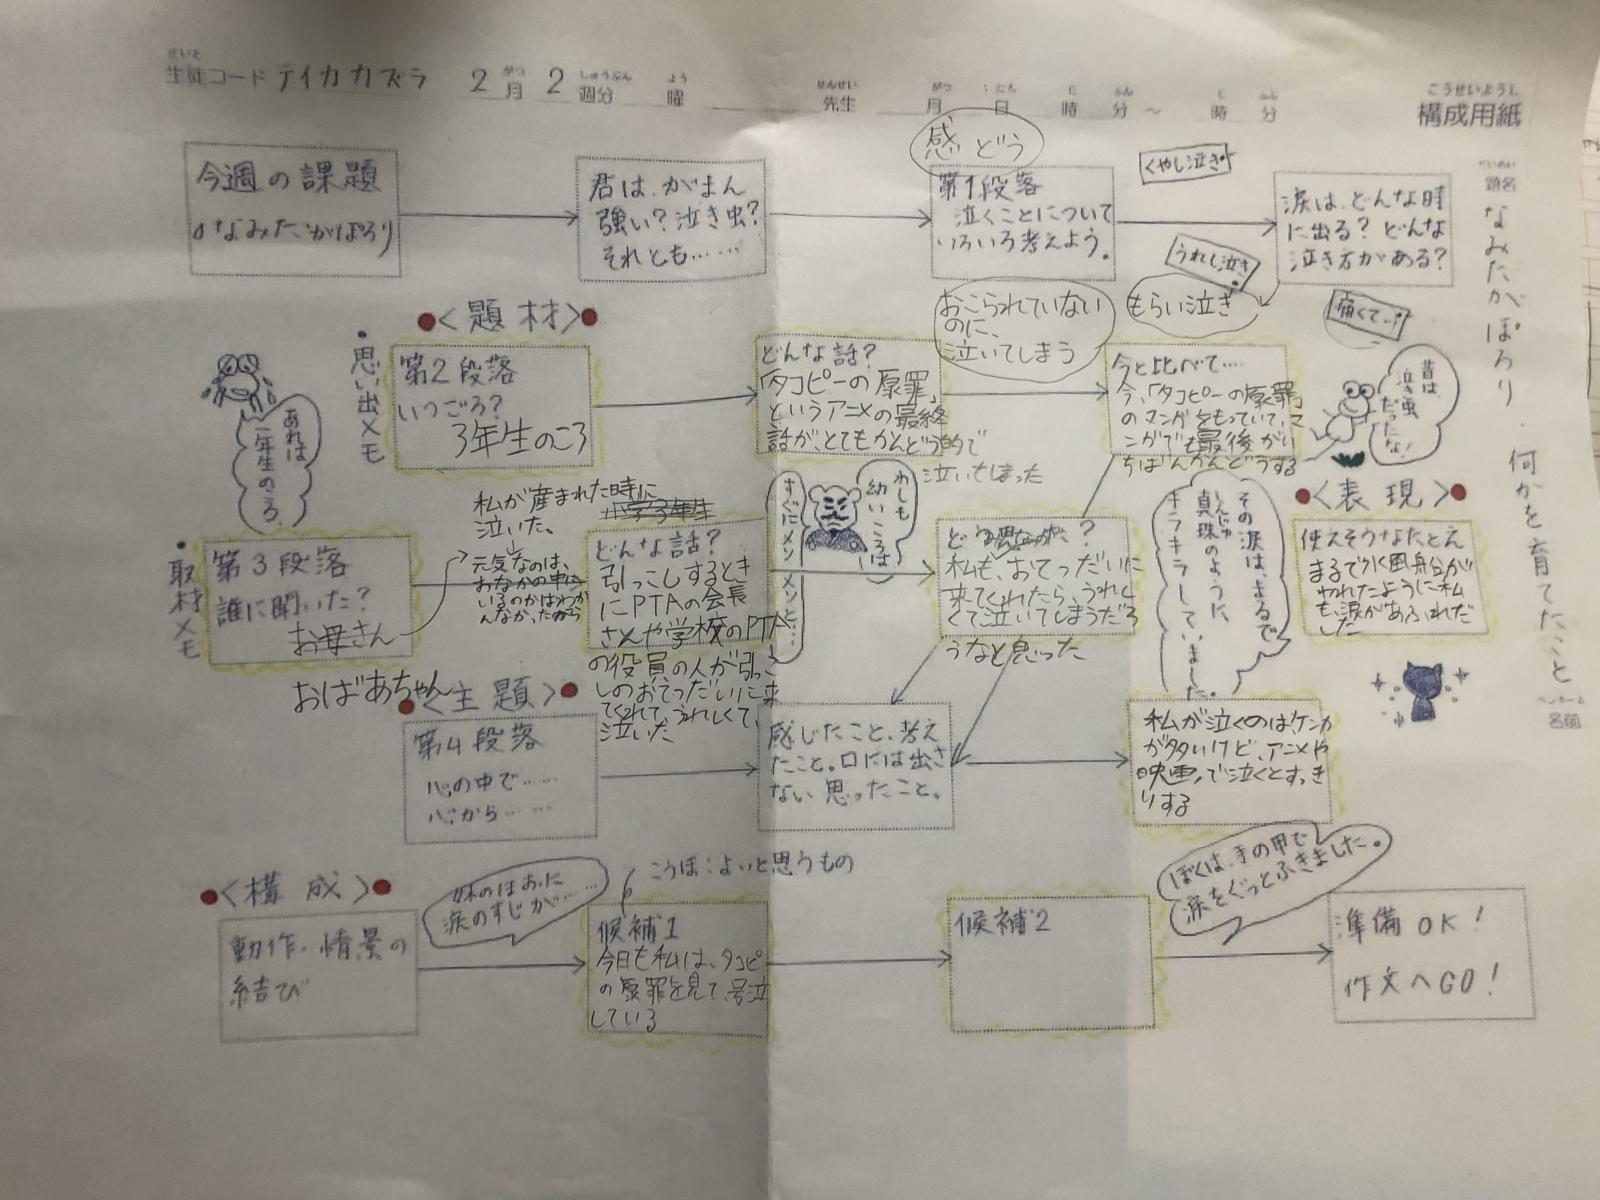 せいと
生徒コード テイカカズラ 2月 2週分 曜 先生 月 日 時 分 〜 時 分
がつ しゅうぶん よう せんせい がつ じ ふん じ ふん
こうせいようし
構成用紙
だいめい
題名
なみだがぽろり 何かを育てたこと
ペンネーム
名前
今週の課題
◦なみだがぽろり
君は、がまん
強い?泣き虫?
それとも……
感どう
第1段落
泣くことについて
いろいろ考えよう。
くやし泣き
うれし泣き
涙は、どんな時
に出る?どんな
泣き方がある?
おこられていない
のに、
泣いてしまう
もらい泣き
痛くて…
●<題材>●
・思い出メモ
あれは
一年生のころ
第2段落
いつごろ?
3年生のころ
どんな話?
「タコピーの原罪」
というアニメの最終
話が、とてもかんどう的で
泣いてしまった
今と比べて……
今、「タコピーの原罪」
のマンガをもっていて、マ
ンガでも最後がい
ちばんかんどうする
昔は
泣き虫
だったな!
・取材メモ
第3段落
誰に聞いた?
お母さん
おばあちゃん
私が産まれた時に
泣いた。
元気なのは、
おなかの中に
いるのかはわか
んなかったから
小学3年生
どんな話?
引っこしするとき
にPTAの会長
さんや学校のPTA
の役員の人が引っこ
しのおてつだいに来
てくれて、うれしくて、
泣いた
わしも
幼いころは
すぐにメソメソと…
私も、おてつだいに
来てくれたら、うれし
くて泣いてしまうだろ
うなと思った
その涙は、まるで
しんじゅ
真珠のように
キラキラしていました。
●<表現>●
使えそうなたとえ
まるで、風船が
われたように私
も、涙があふれだ
した
●<主題>●
第4段落
心の中で……
心から……
感じたこと、考え
たこと。口には出さ
ない思ったこと。
私が泣くのは「ケンカ
が多いけど、アニメや
映画」で泣くとすっき
りする
●<構成>●
動作・情景の
結び
妹のほおに
涙のすじが……
こうほ:よいと思うもの
候補1
今日も私は、タコピー
の原罪を見て、号泣
している
候補2
ぼくは、手の甲で
涙をぐっとふきました。
準備OK!
作文へGO!